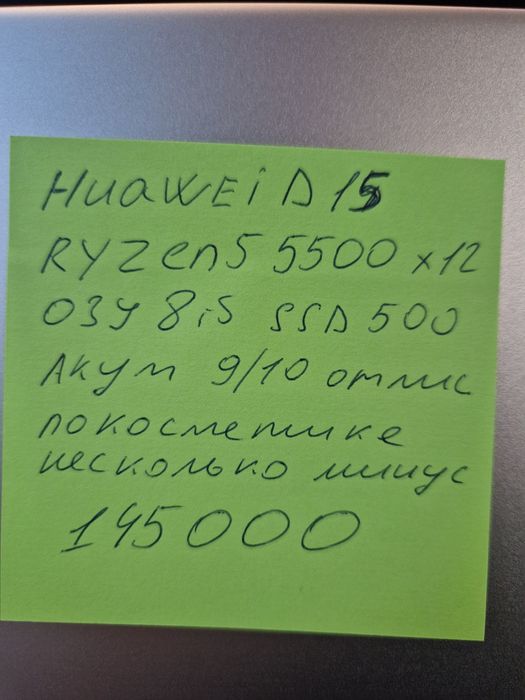 HUAWEI D 15
RYZEN 5 5500 x12
ОЗУ 8 is SSD 500
Акум 9/10 отлис
покосметике
несколько минус
145000